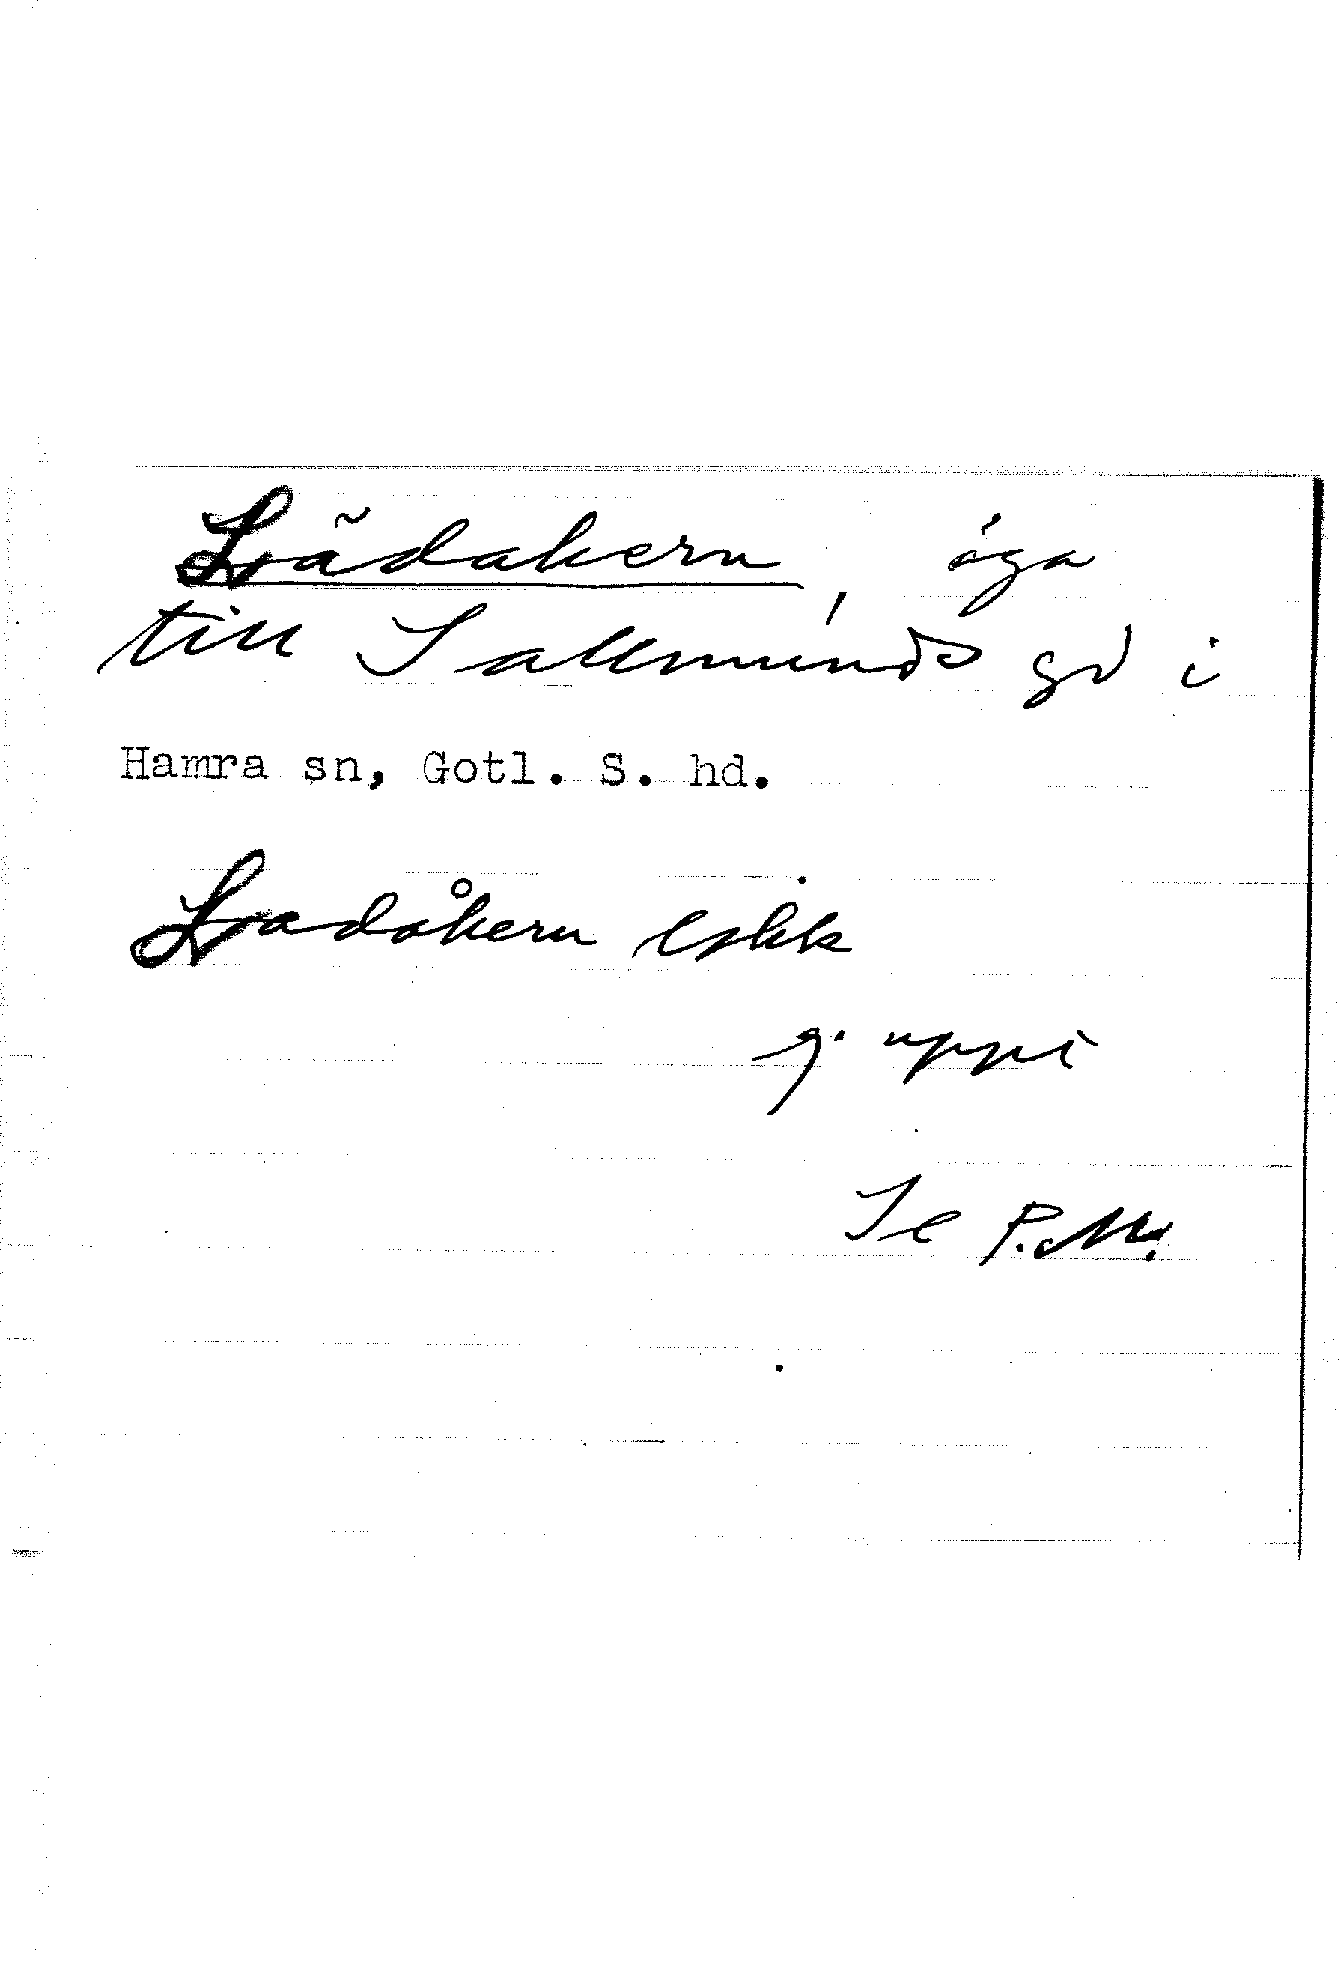 Lãdakern, äga
till Sallmunds gd i
Hamra sn, Gotl. S. hd.
Ladåkern
g. uppt
Se P.M.